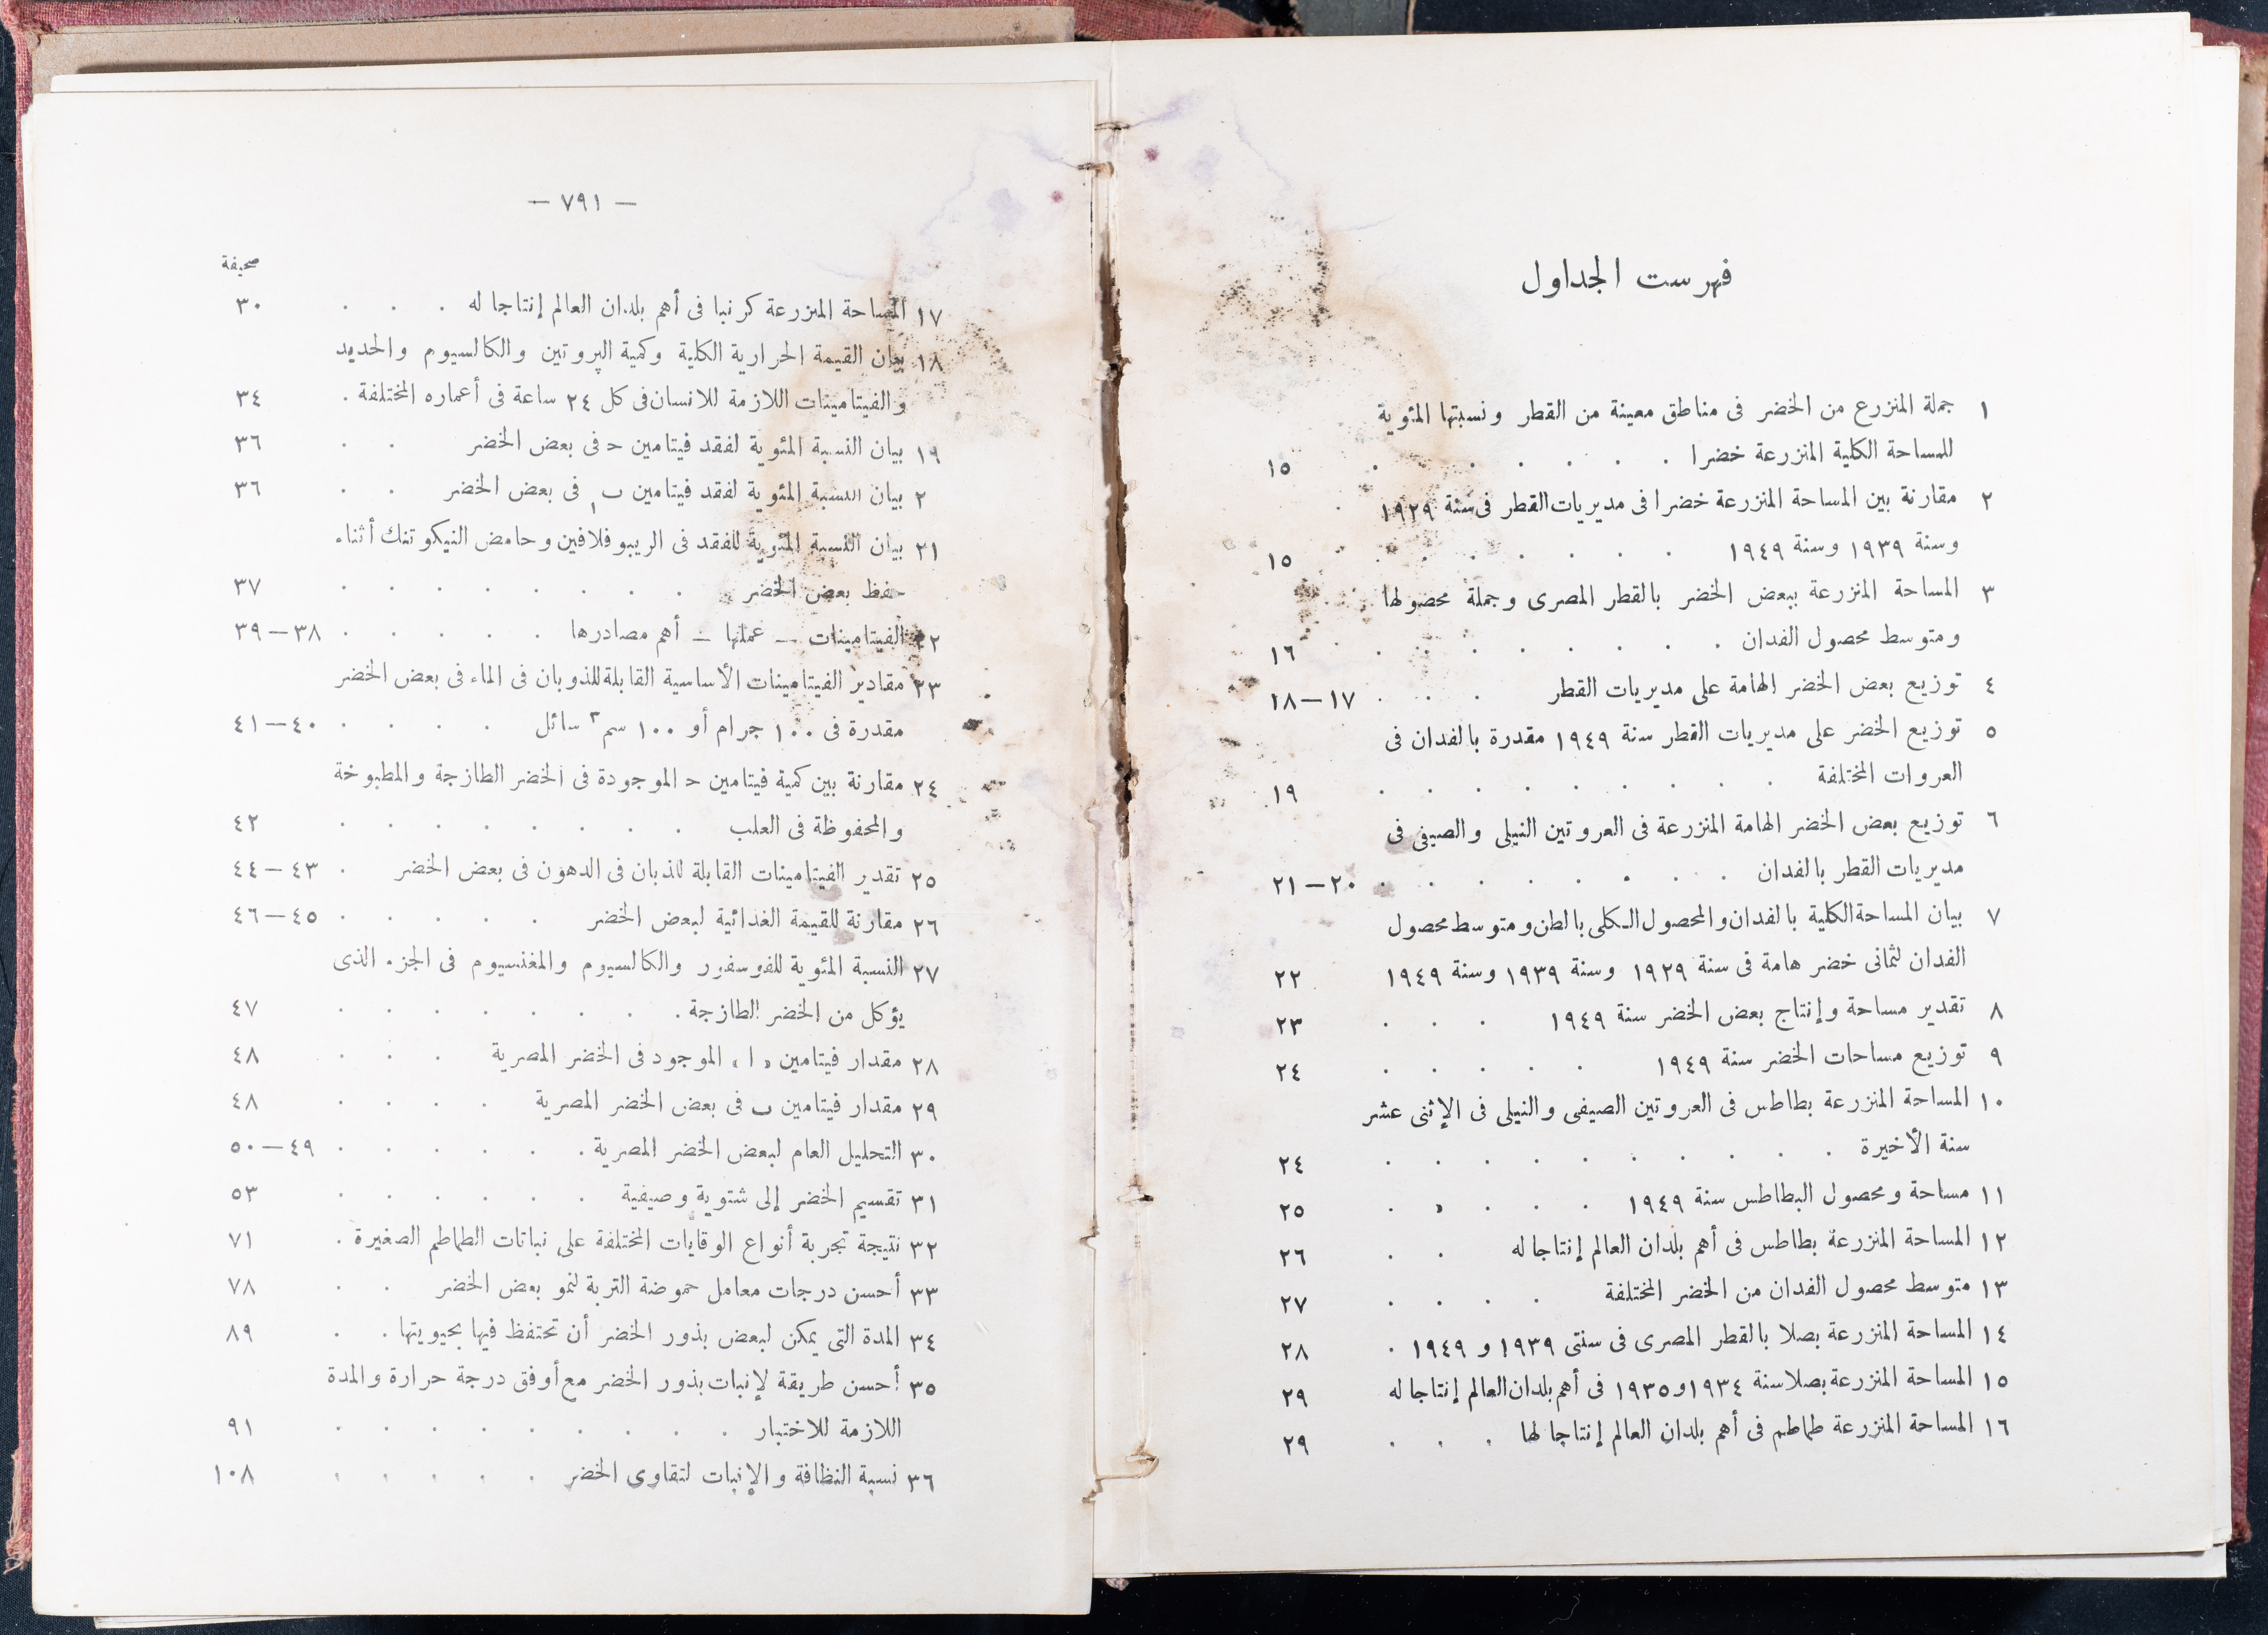 فهرست الجداول
١ جملة المنزرع من الخضر فى مناطق معينة من القطر ونسبتها المئوية
للمساحة الكلية المنزرعة خضرا . . . . . . . ١٥
٢ مقارنة بين المساحة المنزرعة خضرا فى مديريات القطر فى سنة ١٩٢٩
وسنة ١٩٣٩ وسنة ١٩٤٩ . . . . . . . ١٥
٣ المساحة المنزرعة ببعض الخضر بالقطر المصرى وجملة محصولها
ومتوسط محصول الفدان . . . . . . . . ١٦
٤ توزيع بعض الخضر الهامة على مديريات القطر . . . ١٧-١٨
٥ توزيع الخضر على مديريات القطر سنة ١٩٤٩ مقدرة بالفدان فى
العروات المختلفة . . . . . . . . . ١٩
٦ توزيع بعض الخضر الهامة المنزرعة فى العروتين النيلى والصيفى فى
مديريات القطر بالفدان . . . . . . . . ٢٠-٢١
٧ بيان المساحة الكلية بالفدان والمحصول الكلى بالطن ومتوسط محصول
الفدان لثمانى خضر هامة فى سنة ١٩٢٩ وسنة ١٩٣٩ وسنة ١٩٤٩ ٢٢
٨ تقدير مساحة وإنتاج بعض الخضر سنة ١٩٤٩ . . . ٢٣
٩ توزيع مساحات الخضر سنة ١٩٤٩ . . . . . ٢٤
١٠ المساحة المنزرعة بطاطس فى العروتين الصيفى والنيلى فى الإثنى عشر
سنة الأخيرة . . . . . . . . . . ٢٤
١١ مساحة ومحصول البطاطس سنة ١٩٤٩ . . . . . ٢٥
١٢ المساحة المنزرعة بطاطس فى أهم بلدان العالم إنتاجا له . . ٢٦
١٣ متوسط محصول الفدان من الخضر المختلفة . . . . ٢٧
١٤ المساحة المنزرعة بصلا بالقطر المصرى فى سنتى ١٩٣٩ و ١٩٤٩ . ٢٨
١٥ المساحة المنزرعة بصلا سنة ١٩٣٤ و١٩٣٥ فى أهم بلدان العالم إنتاجا له ٢٩
١٦ المساحة المنزرعة طماطم فى أهم بلدان العالم إنتاجا لها . . . ٢٩
— ٧٩١ —
صحيفة
١٧ المساحة المنزرعة كرنبا فى أهم بلدان العالم إنتاجا له . . . ٣٠
١٨ بيان القيمة الحرارية الكلية وكمية البروتين والكالسيوم والحديد
والفيتامينات اللازمة للانسان فى كل ٢٤ ساعة فى أعماره المختلفة . ٣٤
١٩ بيان النسبة المئوية لفقد فيتامين حـ فى بعض الخضر . . ٣٦
٢ بيان النسبة المئوية لفقد فيتامين ب١ فى بعض الخضر . . ٣٦
٢١ بيان النسبة المئوية للفقد فى الريبوفلافين وحامض النيكوتنك أثناء
حفظ بعض الخضر . . . . . . . . ٣٧
٢٢ الفيتامينات — عملها — أهم مصادرها . . . . . ٣٨-٣٩
٢٣ مقادير الفيتامينات الأساسية القابلة للذوبان فى الماء فى بعض الخضر
مقدرة فى ١٠٠ جرام أو ١٠٠ سم٣ سائل . . . . ٤٠-٤١
٢٤ مقارنة بين كمية فيتامين حـ الموجودة فى الخضر الطازجة والمطبوخة
والمحفوظة فى العلب . . . . . . . . ٤٢
٢٥ تقدير الفيتامينات القابلة للذبان فى الدهون فى بعض الخضر . ٤٣-٤٤
٢٦ مقارنة للقيمة الغدائية لبعض الخضر . . . . . ٤٥-٤٦
٢٧ النسبة المئوية للفوسفور والكالسيوم والمغنسيوم فى الجزء الذى
يؤكل من الخضر الطازجة . . . . . . . . ٤٧
٢٨ مقدار فيتامين « ا » الموجود فى الخضر المصرية . . . ٤٨
٢٩ مقدار فيتامين ب فى بعض الخضر المصرية . . . . ٤٨
٣٠ التحليل العام لبعض الخضر المصرية . . . . . . ٤٩-٥٠
٣١ تقسيم الخضر إلى شتوية وصيفية . . . . . . ٥٣
٣٢ نتيجة تجربة أنواع الوقايات المختلفة على نباتات الطماطم الصغيرة . ٧١
٣٣ أحسن درجات معامل حموضة التربة لنمو بعض الخضر . . ٧٨
٣٤ المدة التى يمكن لبعض بذور الخضر أن تحتفظ فيها بحيويتها . . ٨٩
٣٥ أحسن طريقة لإنبات بذور الخضر مع أوفق درجة حرارة والمدة
اللازمة للاختبار . . . . . . . . . ٩١
٣٦ نسبة النظافة والإنبات لتقاوى الخضر . . . . . ١٠٨